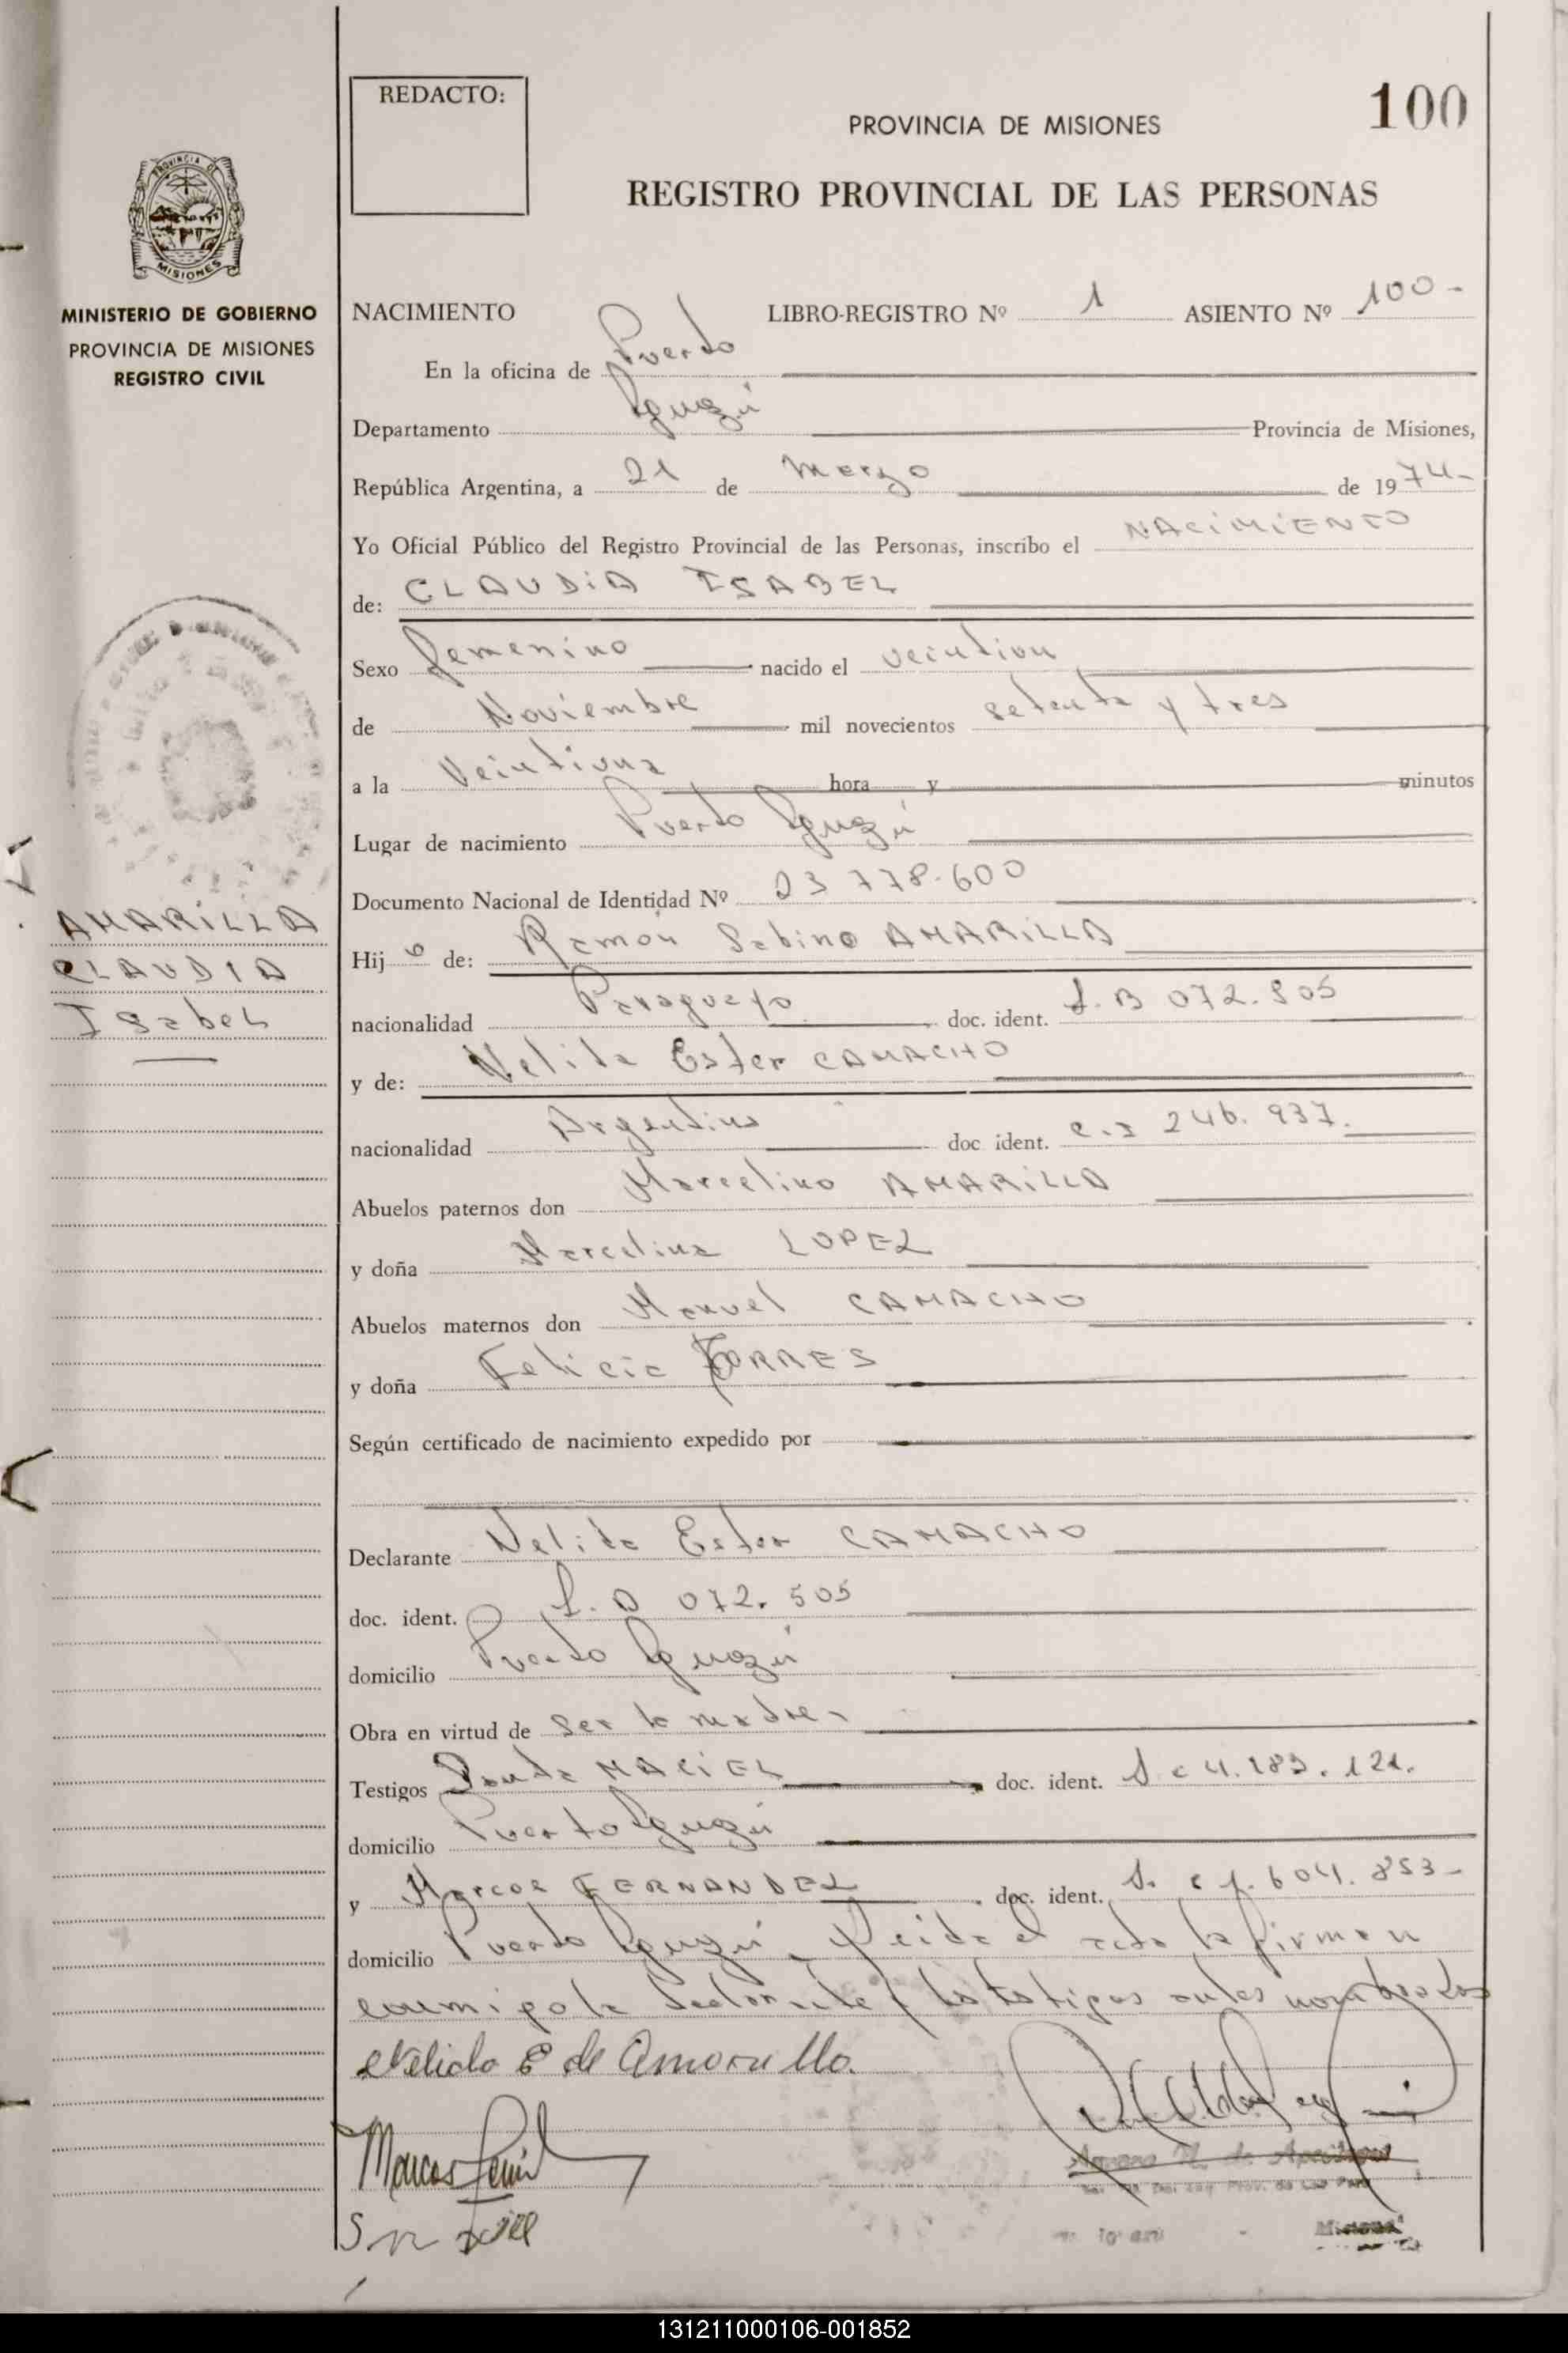 REDACTO:
100
PROVINCIA DE MISIONES
REGISTRO PROVINCIAL DE LAS PERSONAS
PROVINCIA DE
MISIONES
MINISTERIO DE GOBIERNO
PROVINCIA DE MISIONES
REGISTRO CIVIL
NACIMIENTO LIBRO-REGISTRO Nº 1 ASIENTO Nº 100-
En la oficina de Puerto
Departamento Iguazú Provincia de Misiones,
República Argentina, a 21 de Marzo de 1974-
Yo Oficial Público del Registro Provincial de las Personas, inscribo el NACIMIENTO
de: CLAUDIA ISABEL
Sexo femenino nacido el veintiun
de Noviembre mil novecientos setenta y tres
a la Veintiuna hora y minutos
Lugar de nacimiento Puerto Iguazú
Documento Nacional de Identidad Nº 23 778.600
AMARILLA
CLAUDIA
Isabel
Hij a de: Ramón Sabino AMARILLA
nacionalidad Paraguayo doc. ident. 072.505
y de: Nelida Ester CAMACHO
nacionalidad Argentina doc ident. 246.937.
Abuelos paternos don Marcelino AMARILLA
y doña Marcelina LOPEZ
Abuelos maternos don Manuel CAMACHO
y doña Felicia TORRES
Según certificado de nacimiento expedido por
Declarante Nelida Ester CAMACHO
doc. ident. 072.505
domicilio Puerto Iguazú
Obra en virtud de ser la madre-
Testigos MACIEL doc. ident. 4.189.121.
domicilio Puerto Iguazú
y Marcos FERNANDEZ doc. ident. 604.853-
domicilio Puerto Iguazú Leida el acta la firman
conmigo la declarante y los testigos antes nombrados
Nelida E de Amarilla.
Marcos
131211000106-001852